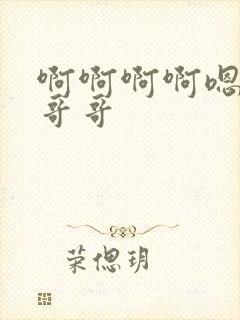 啊啊啊啊嗯
哥哥
荣偲玥